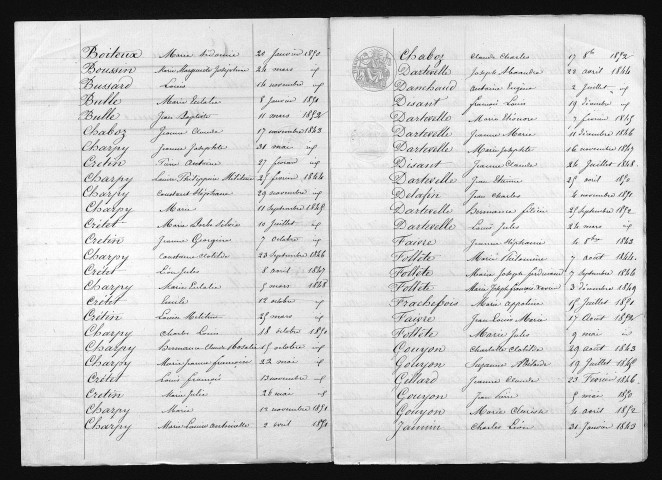 Boiteux Marie Sidonie 20 Janvier 1850
Boussin Marie Marguerite Joséphine 24 mars id
Bussard Louis 16 novembre id
Bulle Marie Eulalie 8 Janvier 1851
Bulle Jean Baptiste 11 mars 1852
Chaboz Jeanne Claude 17 novembre 1843
Charpy Jeanne Josephte 31 mai id
Cretin Pierre Antoine 27 fevrier id
Charpy Louise Philippine 25 fevrier 1844
Charpy Constant Stéphane 29 novembre id
Charpy Marie 11 Septembre 1845
Crétet Marie Silvie 10 Juillet id
Cretin Jeanne Georgine 7 octobre id
Charpy Constance Clotilde 23 Septembre 1846
Cretet Léon Jules 8 avril 1847
Charpy Marie Eulalie 5 mars 1848
Crétet Emile 12 octobre id
Cretin Louis 25 mars id
Charpy Charles Louis 18 octobre 1850
Charpy Hermance Claude 15 octobre id
Charpy Marie Jeanne françoise 22 mai id
Crétet Louis françois 13 novembre id
Cretin Marie Julie 28 mai id
Charpy Marie 12 novembre 1851
Charpy Marie Louise Antoinette 2 avril 1851
Chaboz Claude Charles 17 8bre 1852
Dartevelle Joseph Alexandre 22 avril 1844
Danchaud Antoine Eugène 2 Juillet id
Disant françois Louis 19 décembre id
Dartevelle Marie Eléonore 2 fevrier 1845
Dartevelle Jeanne Marie 11 décembre 1846
Dartevelle Marie Josephte 16 novembre 1847
Disant Jeanne Claude 24 Juillet 1848
Dartevelle Jean Etienne 25 avril 1850
Delafin Jean Charles 4 novembre 1851
Dartevelle Hermance 25 Septembre 1852
Dartevelle Louis Jules 24 mars id
Faivre Jeanne Stéphanie 4 8bre 1843
Folléte Marie Philomine 7 août 1844
Folléte Marie Joseph ferdinand 7 Septembre 1846
Folléte Marie Joseph françois Xavier 3 décembre 1849
Frachebois Marie appoline 15 Juillet 1850
Faivre Jean Louis Marie 17 Août 1852
Folléte Marie Jules 9 mai id
Gouyon Charlotte Clotilde 29 août 1843
Gouyon Suzanne 19 Juillet 1845
Gillard Jeanne Claude 23 Fevrier 1846
Gouyon Jean 5 mai 1850
Gouyon Marie Clarisse 4 avril 1852
Jannin Charles Léon 31 Janvier 1843